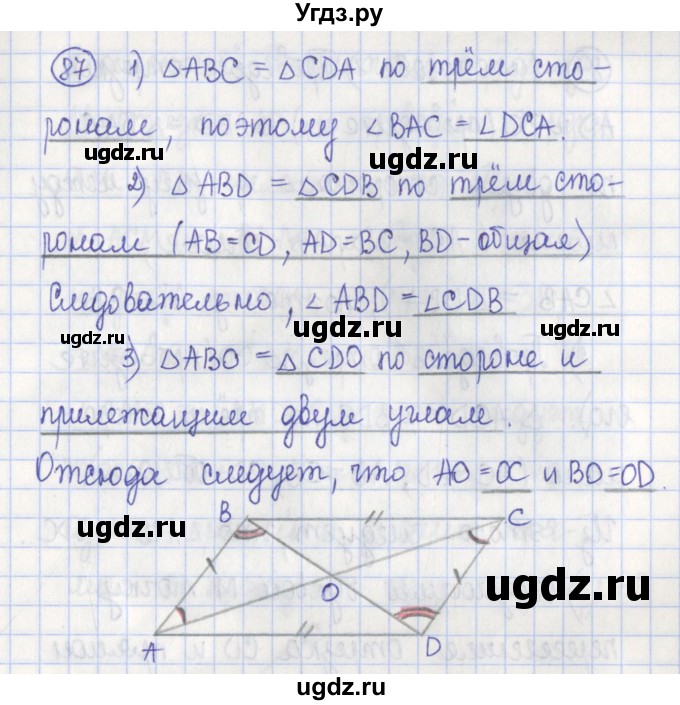 Угдз.ру
87 1) △ABC = △CDA по трём сто-
ронам, поэтому ∠BAC = ∠DCA.
ugdz.ru ugdz.ru
2) △ABD = △CDB по трём сто-
ронам (AB=CD, AD=BC, BD-общая)
Следовательно, ∠ABD = ∠CDB
ugdz.ru ugdz.ru ugdz.ru
3) △ABO = △CDO по стороне и
прилежащим двум углам.
Отсюда следует, что AO=OC и BO=OD.
ugdz.ru
B C
ugdz.ru
O
ugdz.ru
A D
ugdz.ru
ugdz.ru